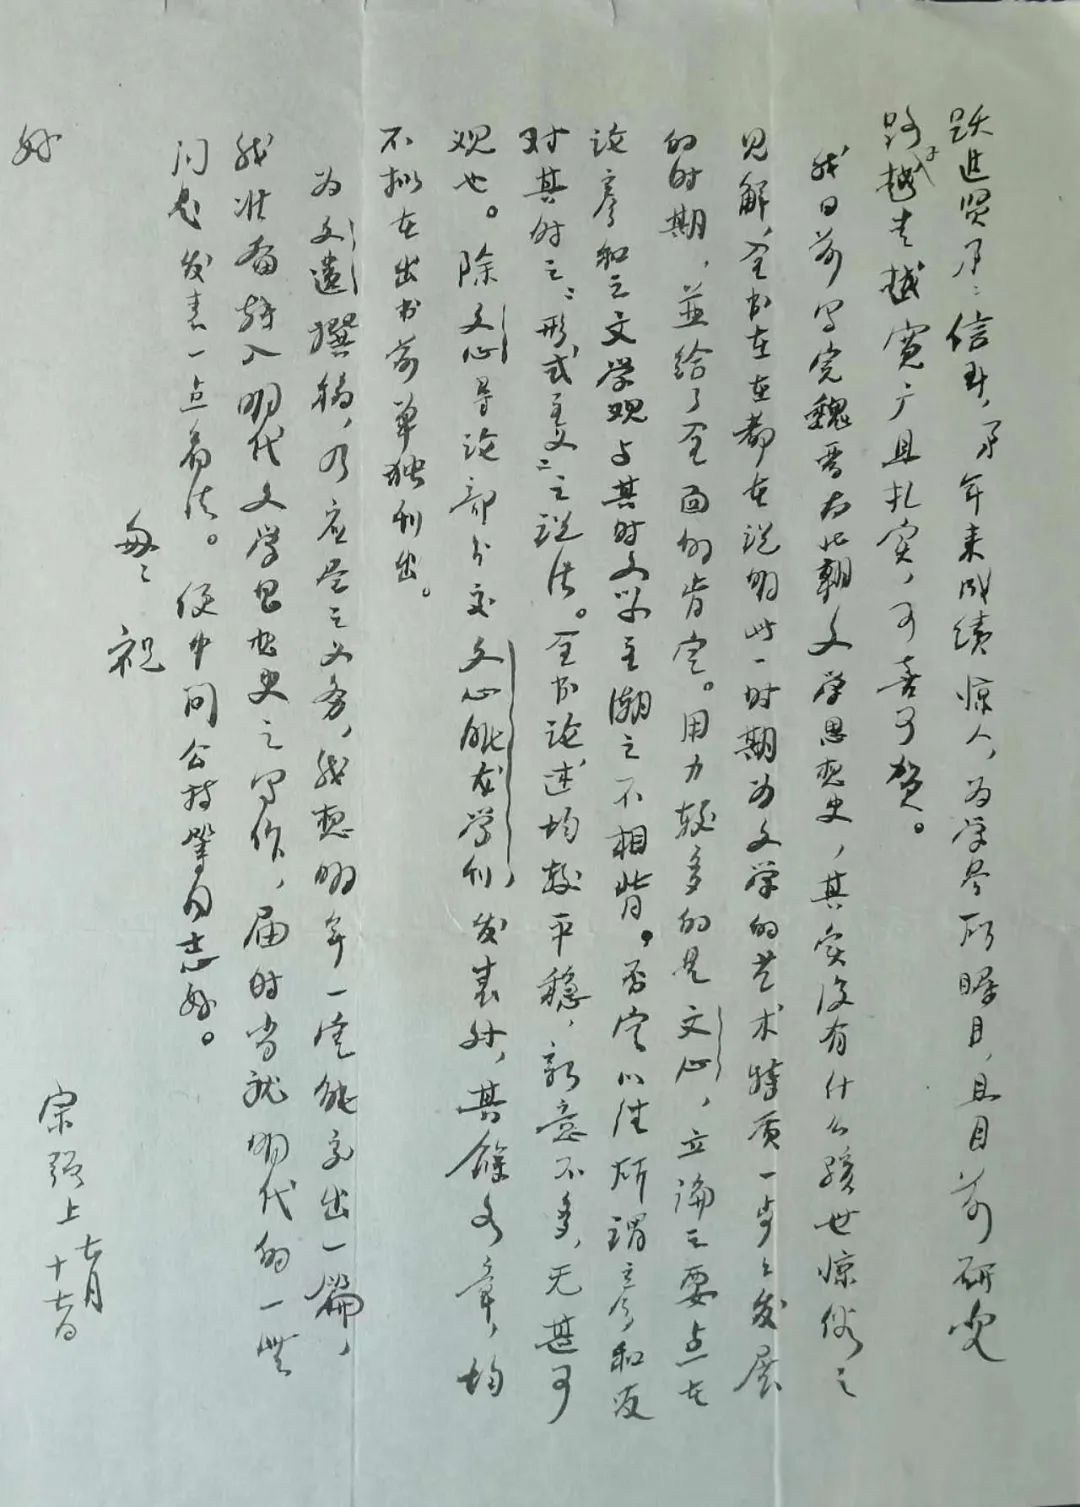 跃进贤弟：信到，弟年来成绩惊人，为学界所瞩目，且目前研究
路子越走越宽广且扎实，可喜可贺。
我日前写完魏晋南北朝文学思想史，其实没有什么骇世惊俗之
见解，全书在在都在说明此一时期为文学的艺术特质一步步发展
的时期，並给了全面的肯定。用力较多的是文心，立论之要点在
论彦和之文学观与其时文学主潮之不相背。否定以往所谓彦和反
对其时之“形式主义”之说法。全书论述均较平稳，新意不多，无甚可
观也。除文心导论部分交文心雕龙学刊发表外，其馀各章，均
不拟在出书前单独刊出。
为文遗撰稿，乃应尽之义务，我想明年一定能交出一篇，
我准备转入明代文学思想史之写作，届时当就明代的一些
问题发表一点看法。便中问公持等同志好。
匆匆 祝
好
宗强上
七月
十七日